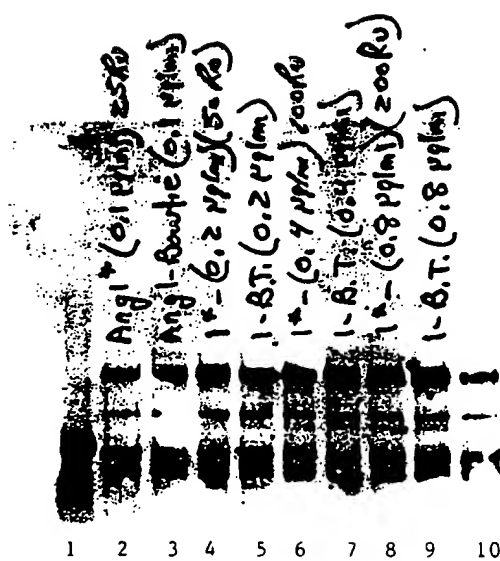 Ang1* (0.1 μg/ml) 25RU
Ang1-Bowtie (0.1 μg/ml)
1*-(0.2 μg/ml)(50 RU)
1-B.T. (0.2 μg/ml)
1*-(0.4 μg/ml) 200RU
1-B.T. (0.4 μg/ml)
1*-(0.8 μg/ml)(200RU)
1-B.T. (0.8 μg/ml)
1 2 3 4 5 6 7 8 9 10